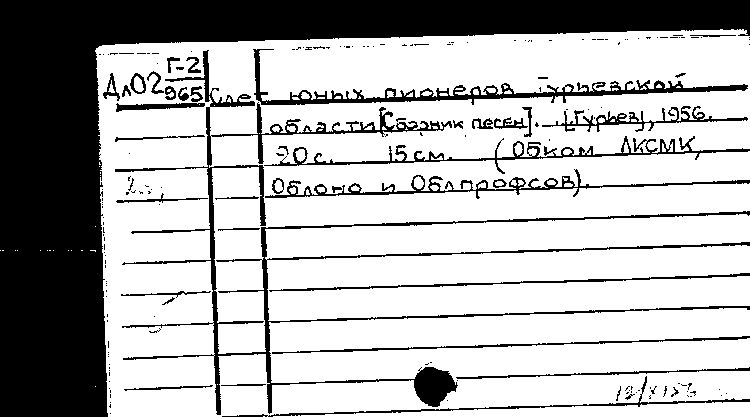 Дл02 Г-2
965
Слет юных пионеров Гурьевской
области [Сборник песен]. [Гурьев], 1956.
20 с. 15 см. (Обком ЛКСМК,
Облоно и Облпрофсов).
12/X156